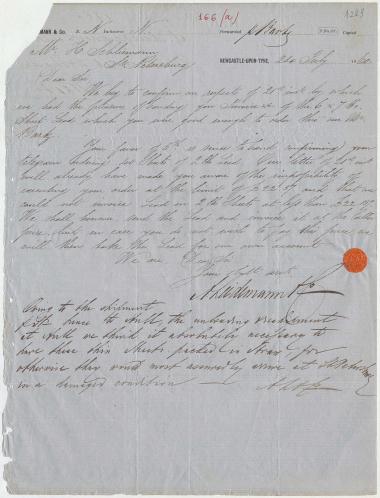 MANN & Co.
166 (a)
1283
Forwarded p. Hardy
NEWCASTLE-UPON-TYNE, 24 July
Mr H. Schliemann
St. Petersburg
Dear Sir
We beg to confirm our respects of 20th inst by which
we had the pleasure of handing you Invoice of the 6 & 7 lb.
Sheet Lead which you were good enough to order thro our Mr
Hardy
Your favor of 5th is since to hand confirming your
telegram ordering Sheets of 2 lb Lead. Our letter of 20th inst
will already have made you aware of the impossibility of
executing your order at the limit of £22 and that we
could not invoice Lead in 2 lb Sheets at less than £22
We shall however send the Lead and invoice it at the latter
price, but in case you do not wish to pay this price we
will then take the Lead for our own account
We are Dear Sir
Your obdt servts
Owing to the shipment
to Hull the unloading
at Hull we think it absolutely necessary to
have these thin Sheets packed in Straw, for
otherwise they would most assuredly arrive at St Petersburg
in a damaged condition